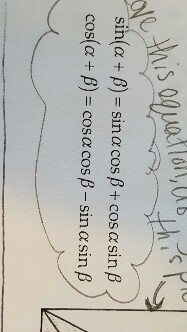 ove this equation, as
this pi
sin(α + β) = sin α cos β + cos α sin β
cos(α + β) = cos α cos β − sin α sin β